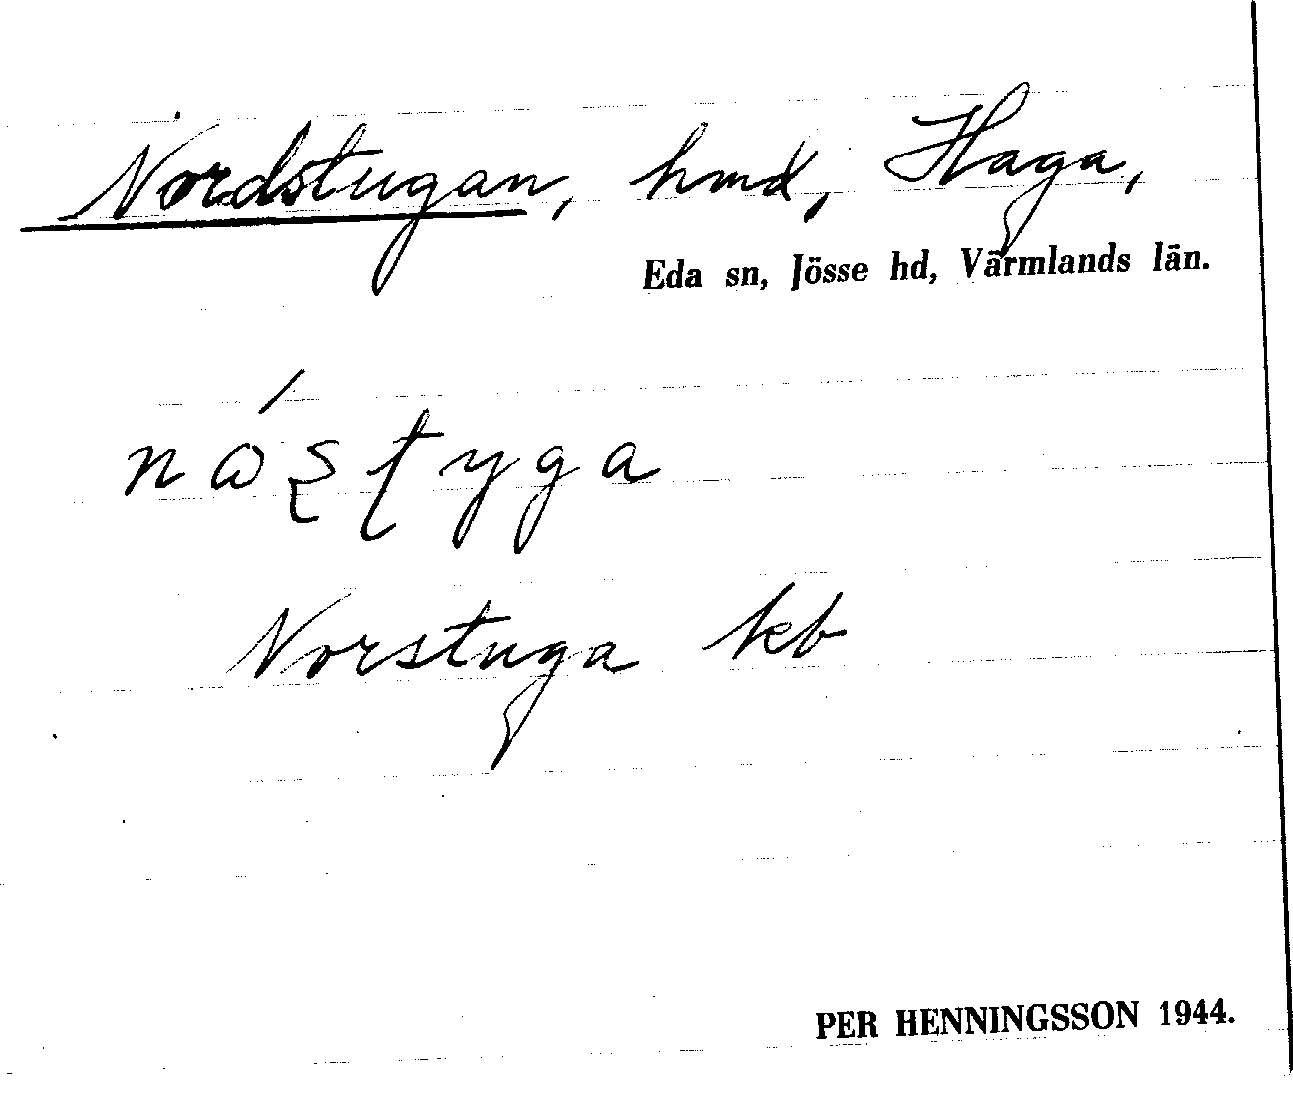 Nordstugan, hmd, Haga,
Eda sn, Jösse hd, Värmlands län.
nɷ́ʂʈyga
Norstuga kb
PER HENNINGSSON 1944.